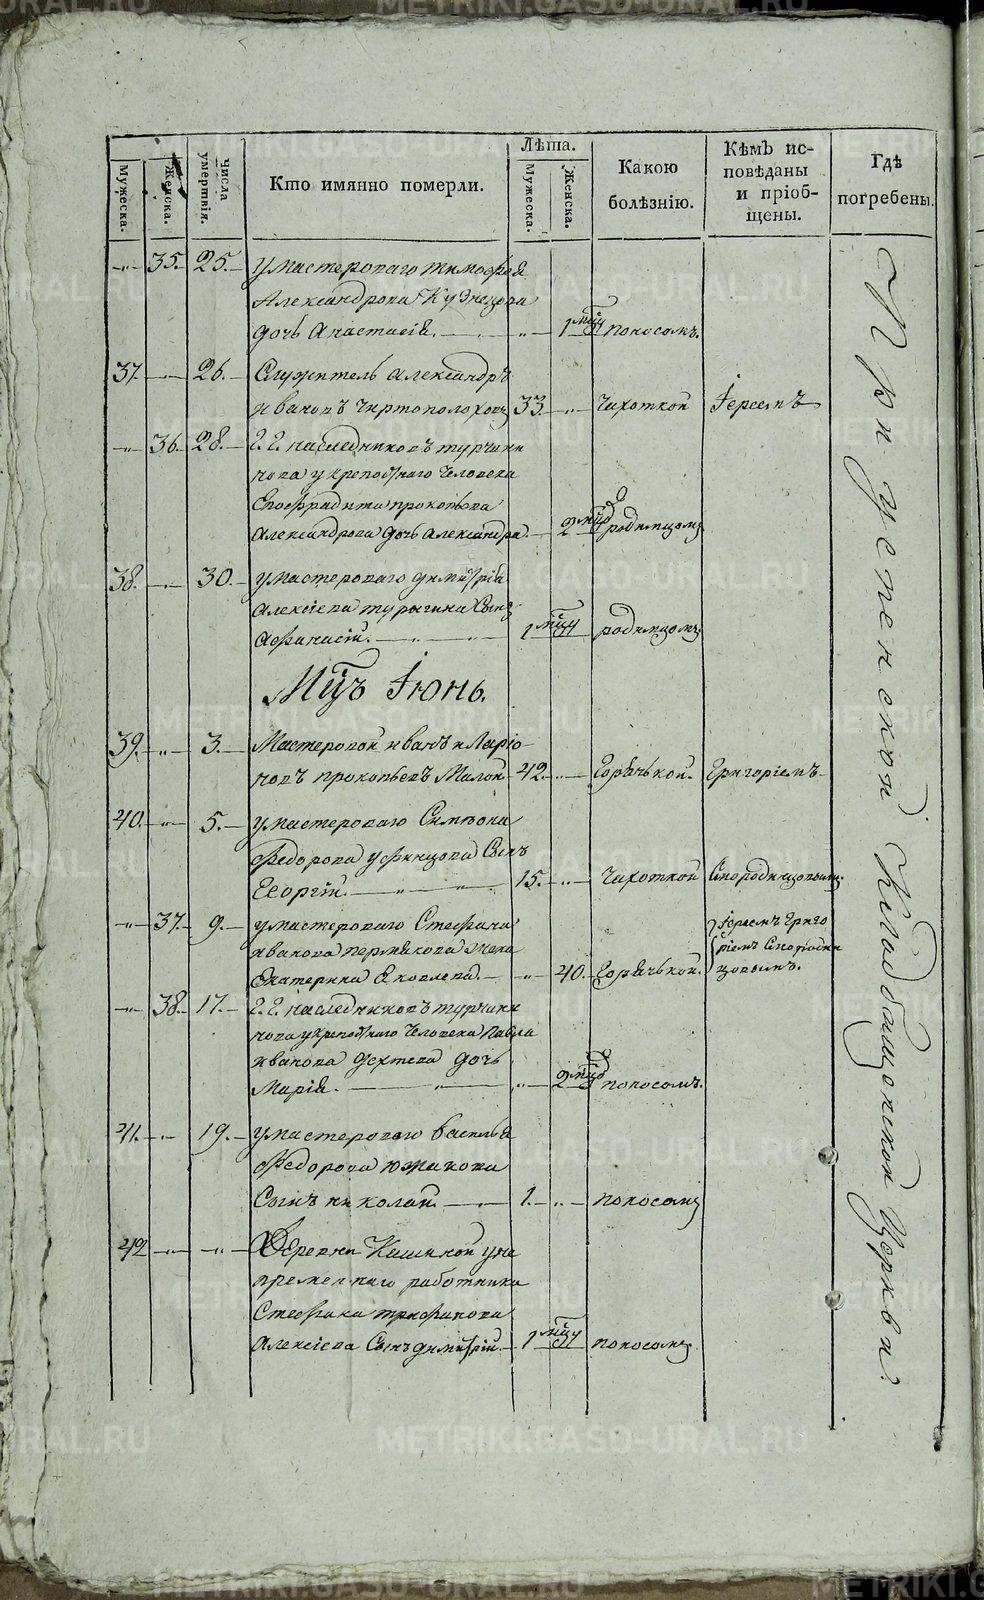 METRIKI.GASO-URAL.RU
Мужеска.
Женска.
Числа умертвія.
Кто имянно померли.
Лѣта.
Мужеска.
Женска.
Какою болѣзнію.
Кѣмъ исповѣданы и пріобщены.
Гдѣ погребены.
„ 35. 25. у мастероваго тимофея
Александрова Кузнецова
дочь Анастасія. „ 1 мцу поносомъ.
37. „ 26. Служитель александръ
иванов чертополохов 33. „ чахоткой Іереемъ
„ 36. 28. Г. Г. наследниковъ турчани
нова у крепостнаго человека
Епафродита прокопьева
Александрова дочь александра. 2 мцо родимцомъ
38. „ 30. у мастероваго димитрія
алексіева турыгина Сынъ
афанасій. 1 мцу родимцомъ
Мцъ Іюнь.
39. „ 3. Мастеровой иванъ иларіо
новъ прокопьевъ Малой 42. „ Горячкой. Григоріемъ
40. „ 5. у мастероваго Симеона
федорова уфинцова Сынъ
Георгій. „ 15. „ Чахоткой Словодчиковымъ.
„ 37. 9. у мастероваго Стефана
иванова пермякова жена
Екатерина Яковлева. „ 40. Горячкой. Іереемъ Григо
ріемъ
„ 38. 17. Г. Г. наследниковъ турчани
нова у крепостнаго человека павла
иванова дехтева дочь
Марія. „ 2 мцо поносомъ.
41. „ 19. у мастероваго василья
федорова южакова
Сынъ николай. 1. „ поносомъ
42 „ „ Деревни Кашиной у не
пременнаго работника
Стефана трифанова
алексіева Сынъ димитрій. 1 мцу поносомъ.
При успенской Кладбищенской Церкви.